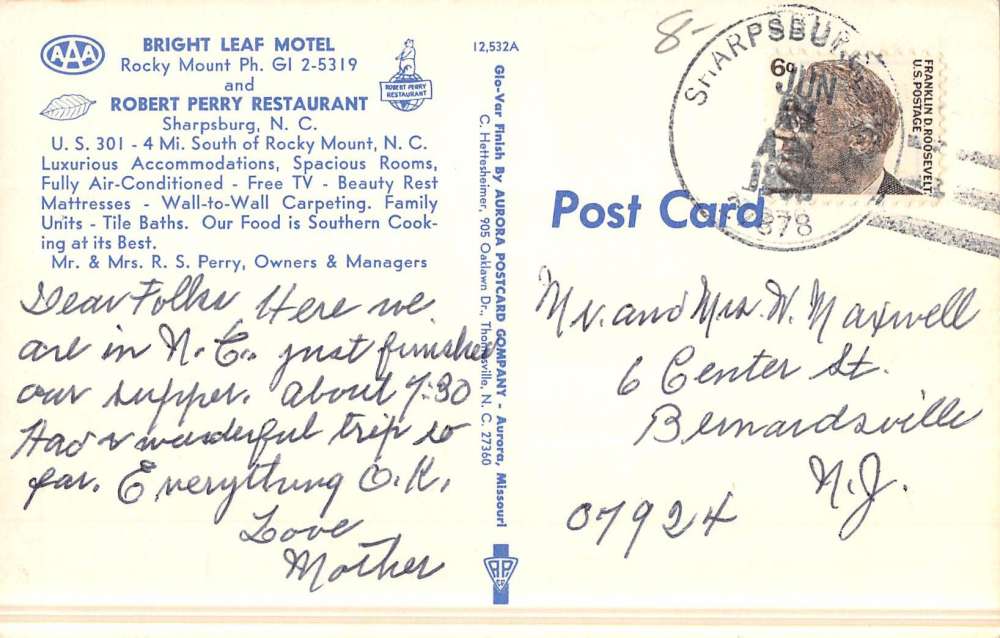 AAA
BRIGHT LEAF MOTEL
Rocky Mount Ph. GI 2-5319
and
ROBERT PERRY RESTAURANT
Sharpsburg, N. C.
U. S. 301 - 4 Mi. South of Rocky Mount, N. C.
Luxurious Accommodations, Spacious Rooms,
Fully Air-Conditioned - Free TV - Beauty Rest
Mattresses - Wall-to-Wall Carpeting. Family
Units - Tile Baths. Our Food is Southern Cook-
ing at its Best.
Mr. & Mrs. R. S. Perry, Owners & Managers
ROBERT PERRY
RESTAURANT
12,532A
Dear Folks Here we
are in N.C., just finished
our supper. about 7:30
Had a wonderful trip so
far. Everything O.K.
Love
Mother
Glo-Var Finish By AURORA POSTCARD COMPANY - Aurora, Missouri
C. Hettesheimer, 905 Oaklawn Dr., Thomasville, N. C. 27360
Post Card
8-
SHARPSBURG
JUN
278
6¢
FRANKLIN D. ROOSEVELT
U.S. POSTAGE
Mr. and Mrs. W. Maxwell
6 Center St.
Bernardsville
N.J.
07924